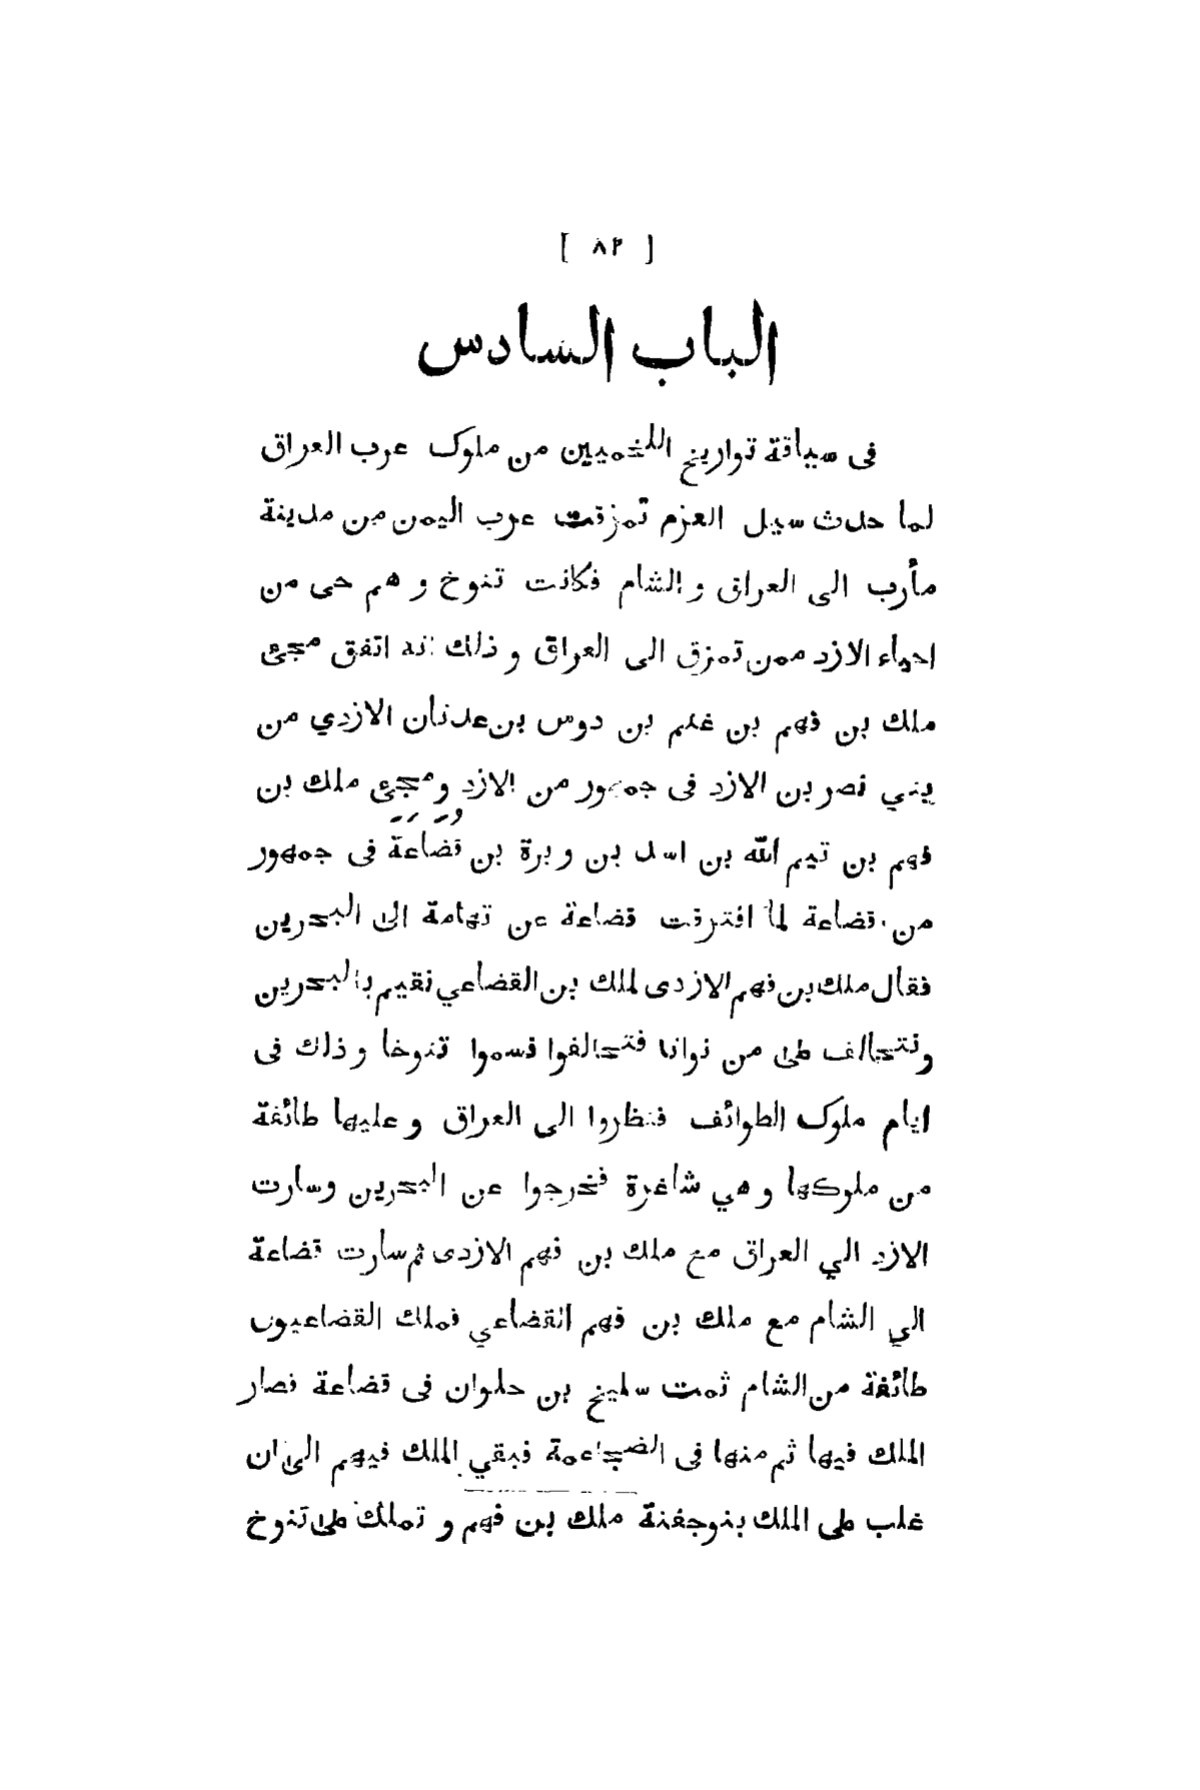 [ ٨٢ ]
الباب السادس
فى سياقة تواريخ اللخميين من ملوك عرب العراق
لما حدث سيل العزم تمزقت عرب اليمن من مدينة
مأرب الى العراق و الشام فكانت تنوخ و هم حى من
احياء الازد ممن تمزق الى العراق و ذلك انه اتفق مجىء
ملك بن فهم بن غنم بن دوس بن عدنان الازدي من
بني نصر بن الازد فى جمهور من الازد و مجىء ملك بن
فهم بن تيم الله بن اسد بن وبرة بن قضاعة فى جمهور
من قضاعة لما افترقت قضاعة عن تهامة الى البحرين
فقال ملك بن فهم الازدى لملك بن القضاعي نقيم بالبحرين
ونتحالف على من نوانا فتحالفوا فسموا تنوخا و ذلك فى
ايام ملوك الطوائف فنظروا الى العراق و عليها طائفة
من ملوكها و هي شاغرة فخرجوا عن البحرين وسارت
الازد الي العراق مع ملك بن فهم الازدى ثم سارت قضاعة
الي الشام مع ملك بن فهم القضاعي فملك القضاعيون
طائفة من الشام ثمت سليخ بن حلوان فى قضاعة فصار
الملك فيها ثم منها فى الضجاعمة فبقي الملك فيهم الى ان
غلب على الملك بنو جفنة ملك بن فهم و تملك على تنوخ